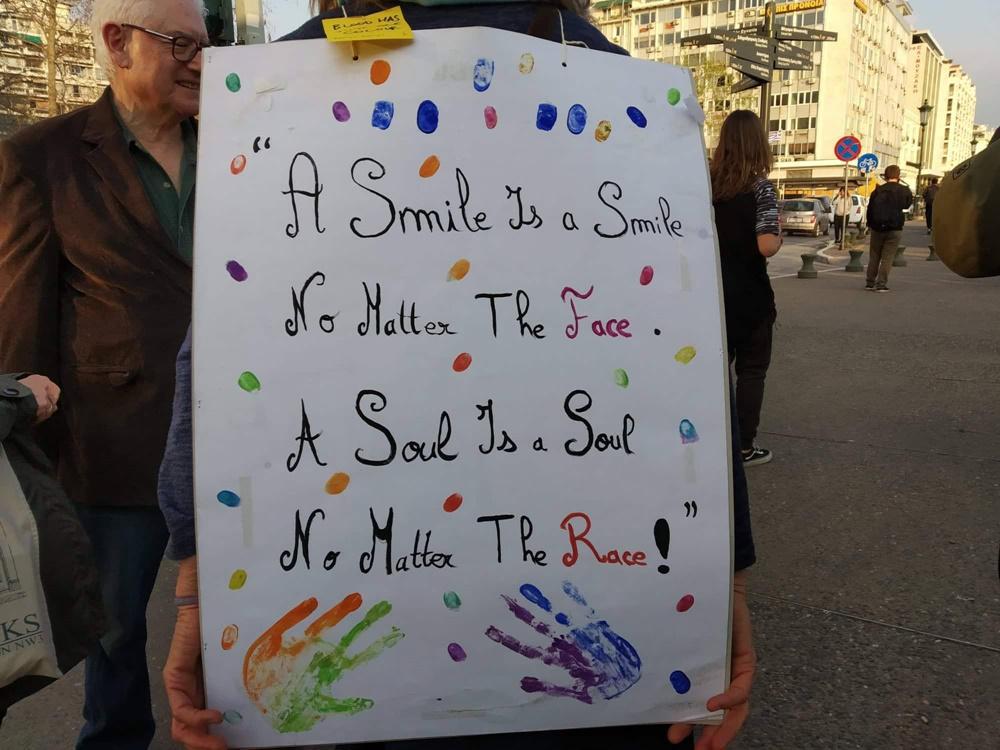 BLOOD HAS
"A Smile Is a Smile
No Matter The Face .
A Soul Is a Soul
No Matter The Race!"
KS
N NW3